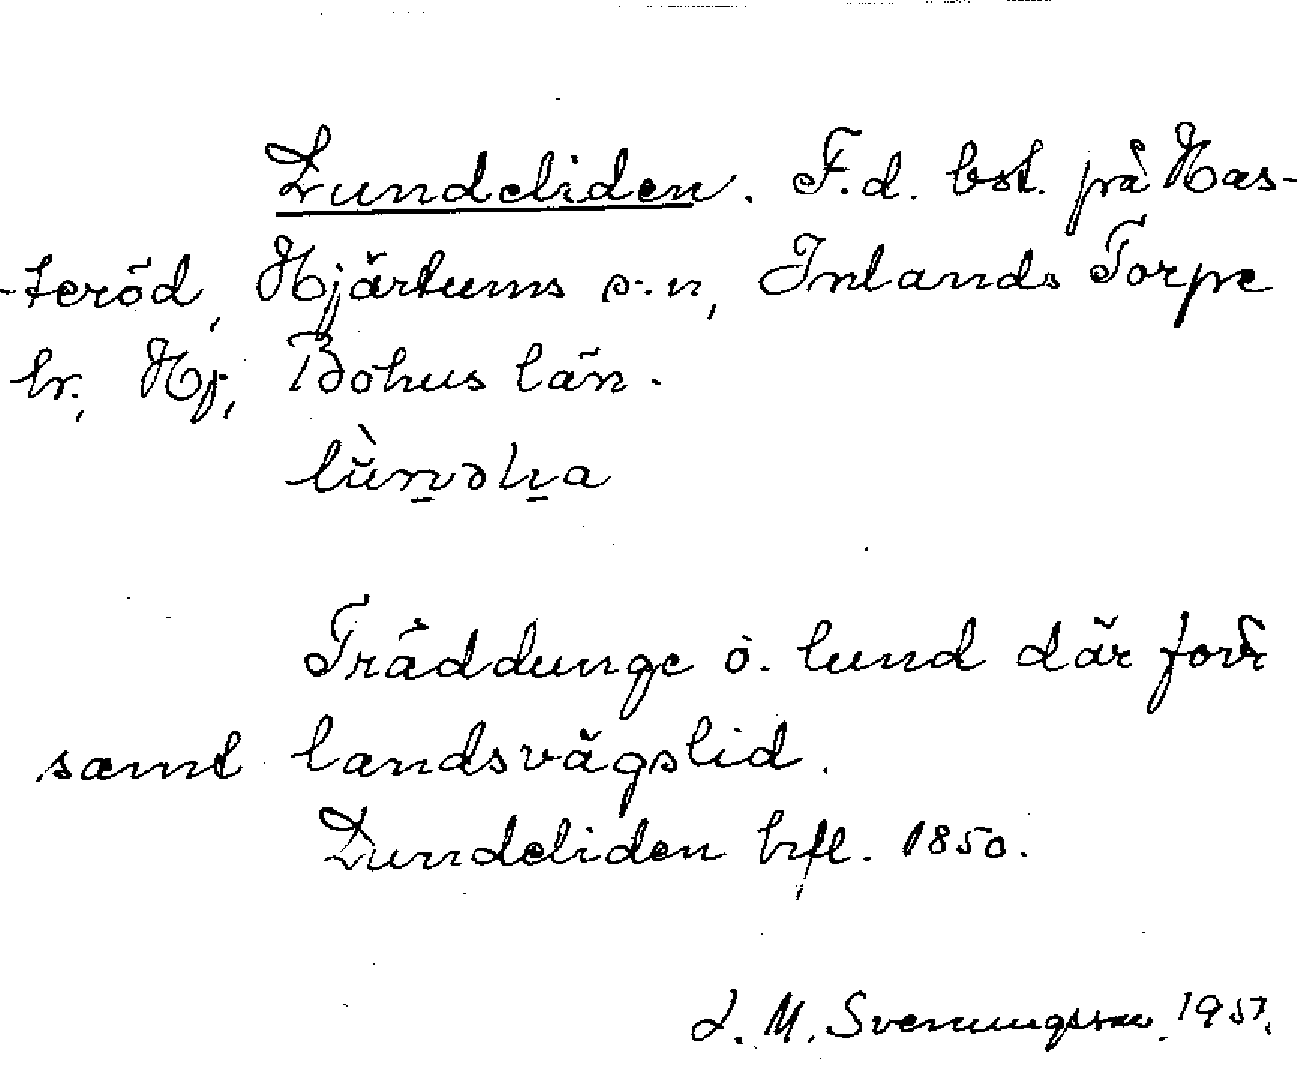 Lundeliden. F.d. bst. på Has-
-teröd, Hjärtums s-n, Inlands Torpe
hr., Hj., Bohus län.
Träddunge o. lund där förr
samt landsvägslid.
Lundeliden hfl. 1850.
J. M. Svenungsson. 1957.